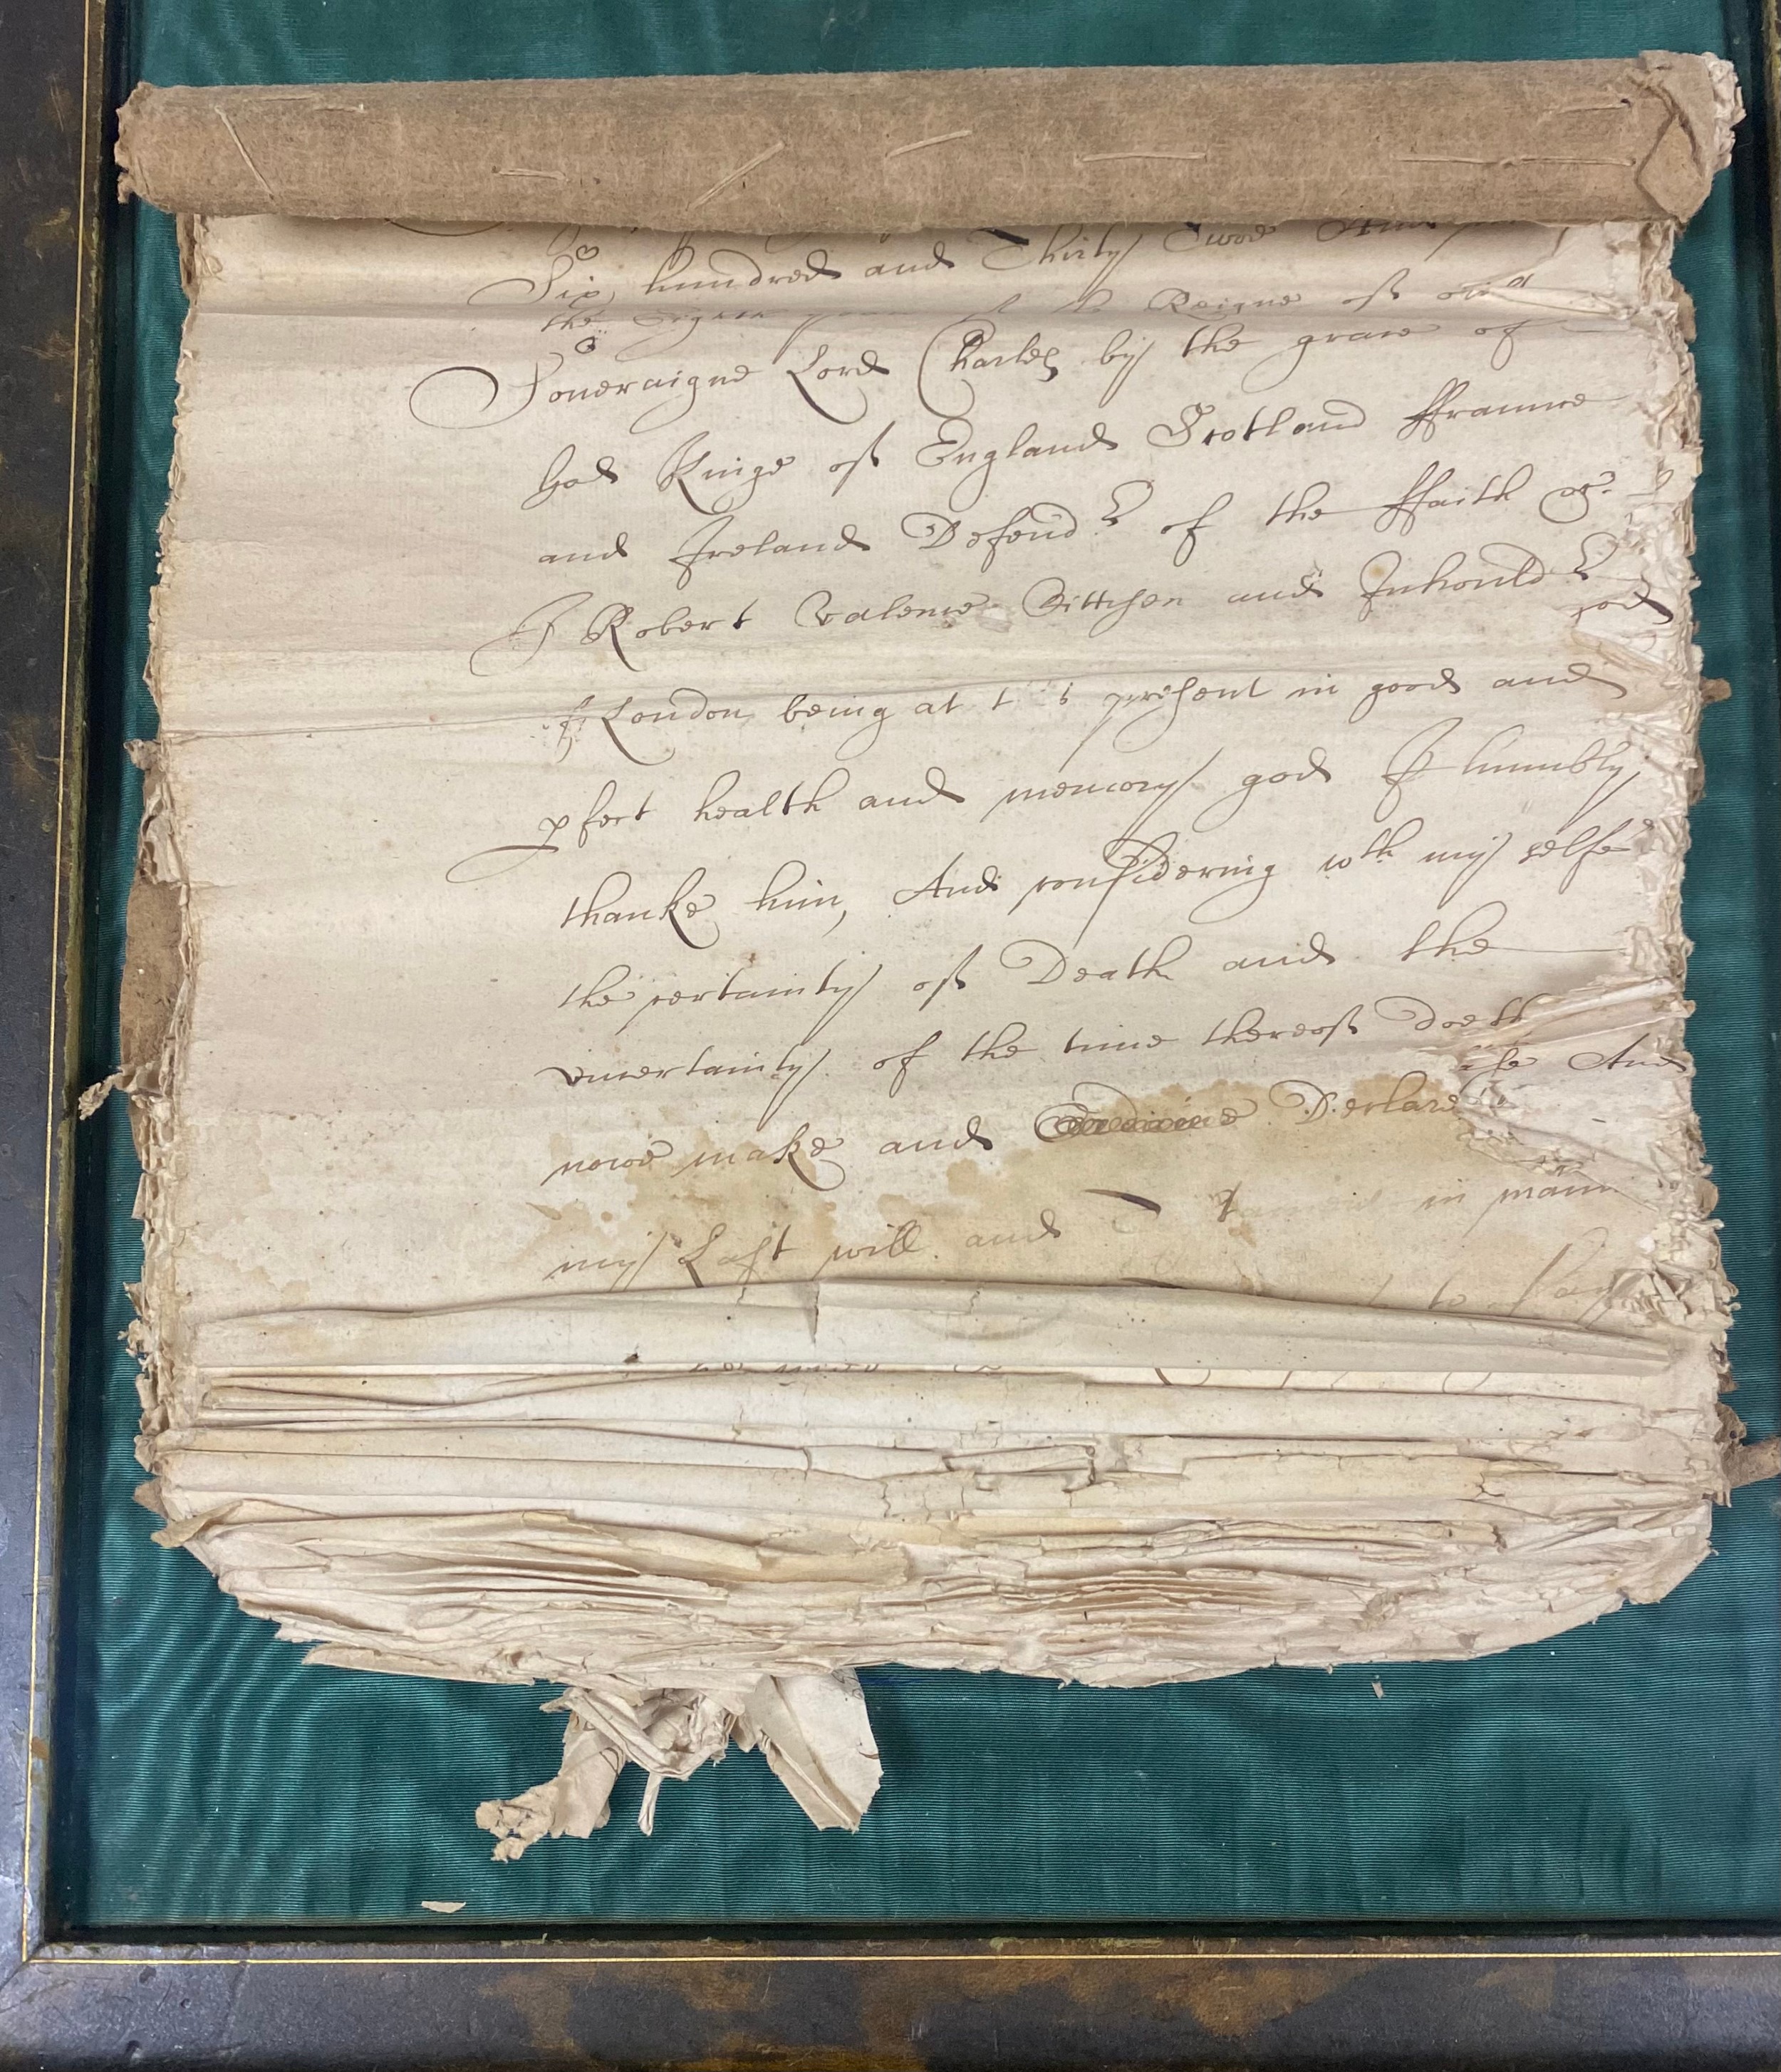 Six hundred and Thirty Twoe And
the Eight yeare of the Reigne of our
Soueraigne Lord Charles by the grace of
God Kinge of England Scotland ffraunce
and Ireland Defendr of the ffaith &c.
I Robert Valence Cittizen and Inhouldr
of London being at present in good and
pfect health and memory god I humbly
thanke him, And considering wth my selfe
the certainty of Death and the
vncertainty of the time thereof doe
And
nowe make and Declare
my Last will and in mann
to